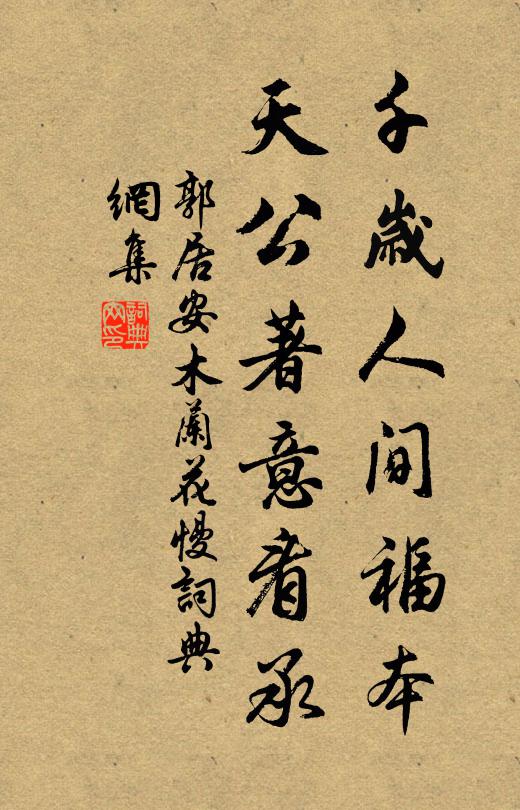 千歲人間福本
天公著意看承
郭居安木蘭花慢詞典
網集
詞典
网印